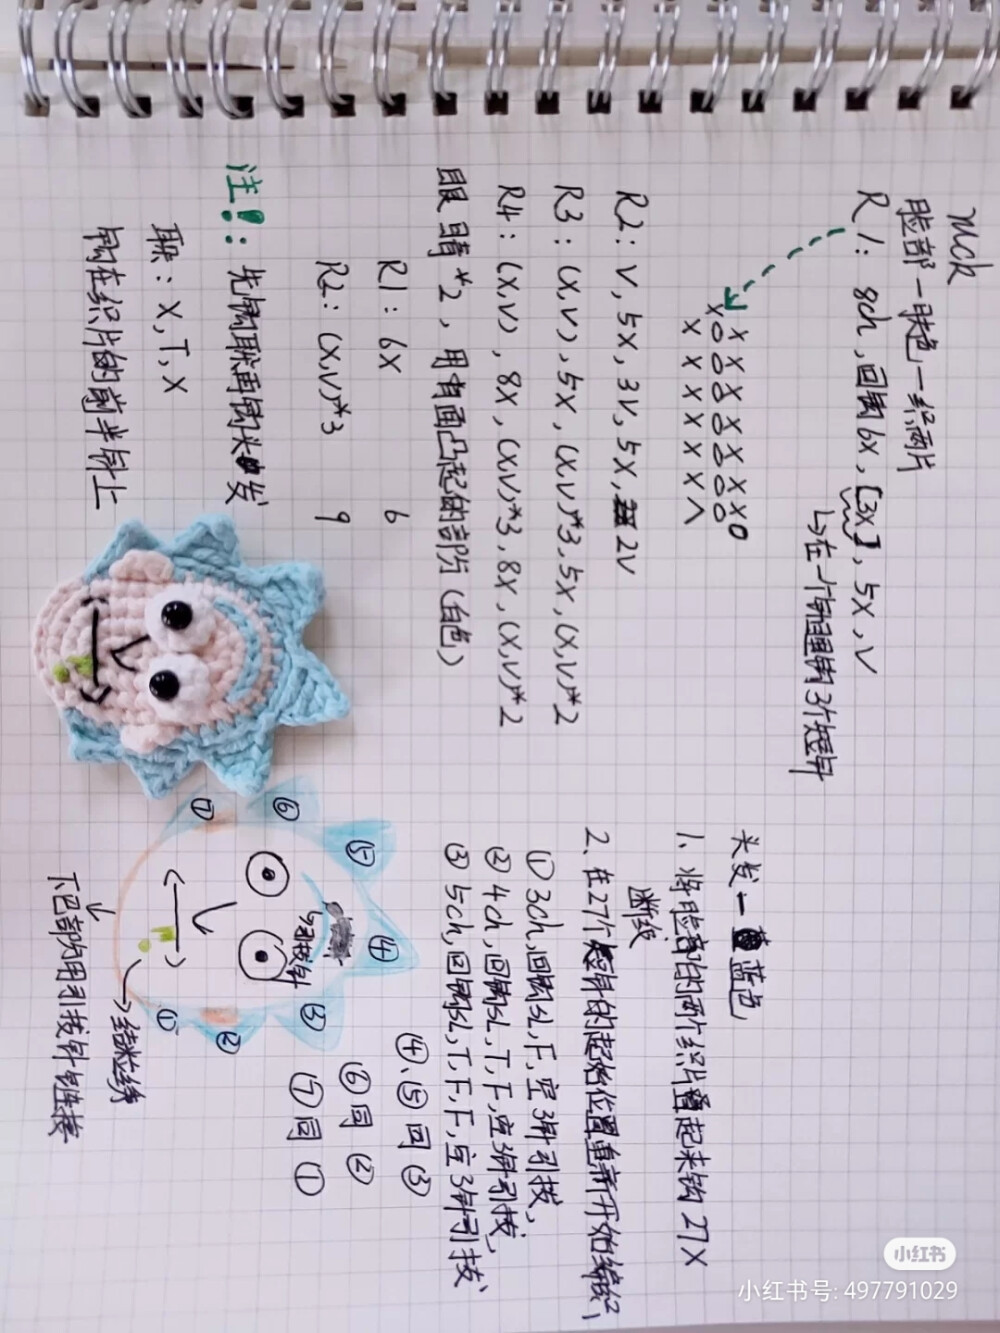 rick
脸部一肤色一织两片
R1: 8ch,回钩6X,[3X],5X,V
↳在一个针目里钩3个短针
x x x x x x x o
x o o o o o o o
x x x x x x ∧
R2: V,5X,3V,5X,2V
R3: (X,V),5X,(X,V)*3,5X,(X,V)*2
R4: (X,V),8X,(X,V)*3,8X,(X,V)*2
眼睛*2,用背面凸起的部分(白色)
R1: 6X 6
R2: (X,V)*3 9
注!: 先钩耳朵再钩头发
耳: X,T,X
钩在织片的前半针上
头发一蓝色
1、将脸部的两个织片叠起来钩27X
断线
2、在27个短针的起始位置重新开始编织,
① 3ch,回钩SL,F,空3针引拔,
② 4ch,回钩SL,T,F,空3针引拔,
③ 5ch,回钩SL,T,F,F,空3针引拔
④、⑤同③
⑥同②
⑦同①
⑦
⑥
⑤
④
③
②
①
引拔针
结粒绣
下巴部为用引拔针链接
小红书
小红书号: 497791029